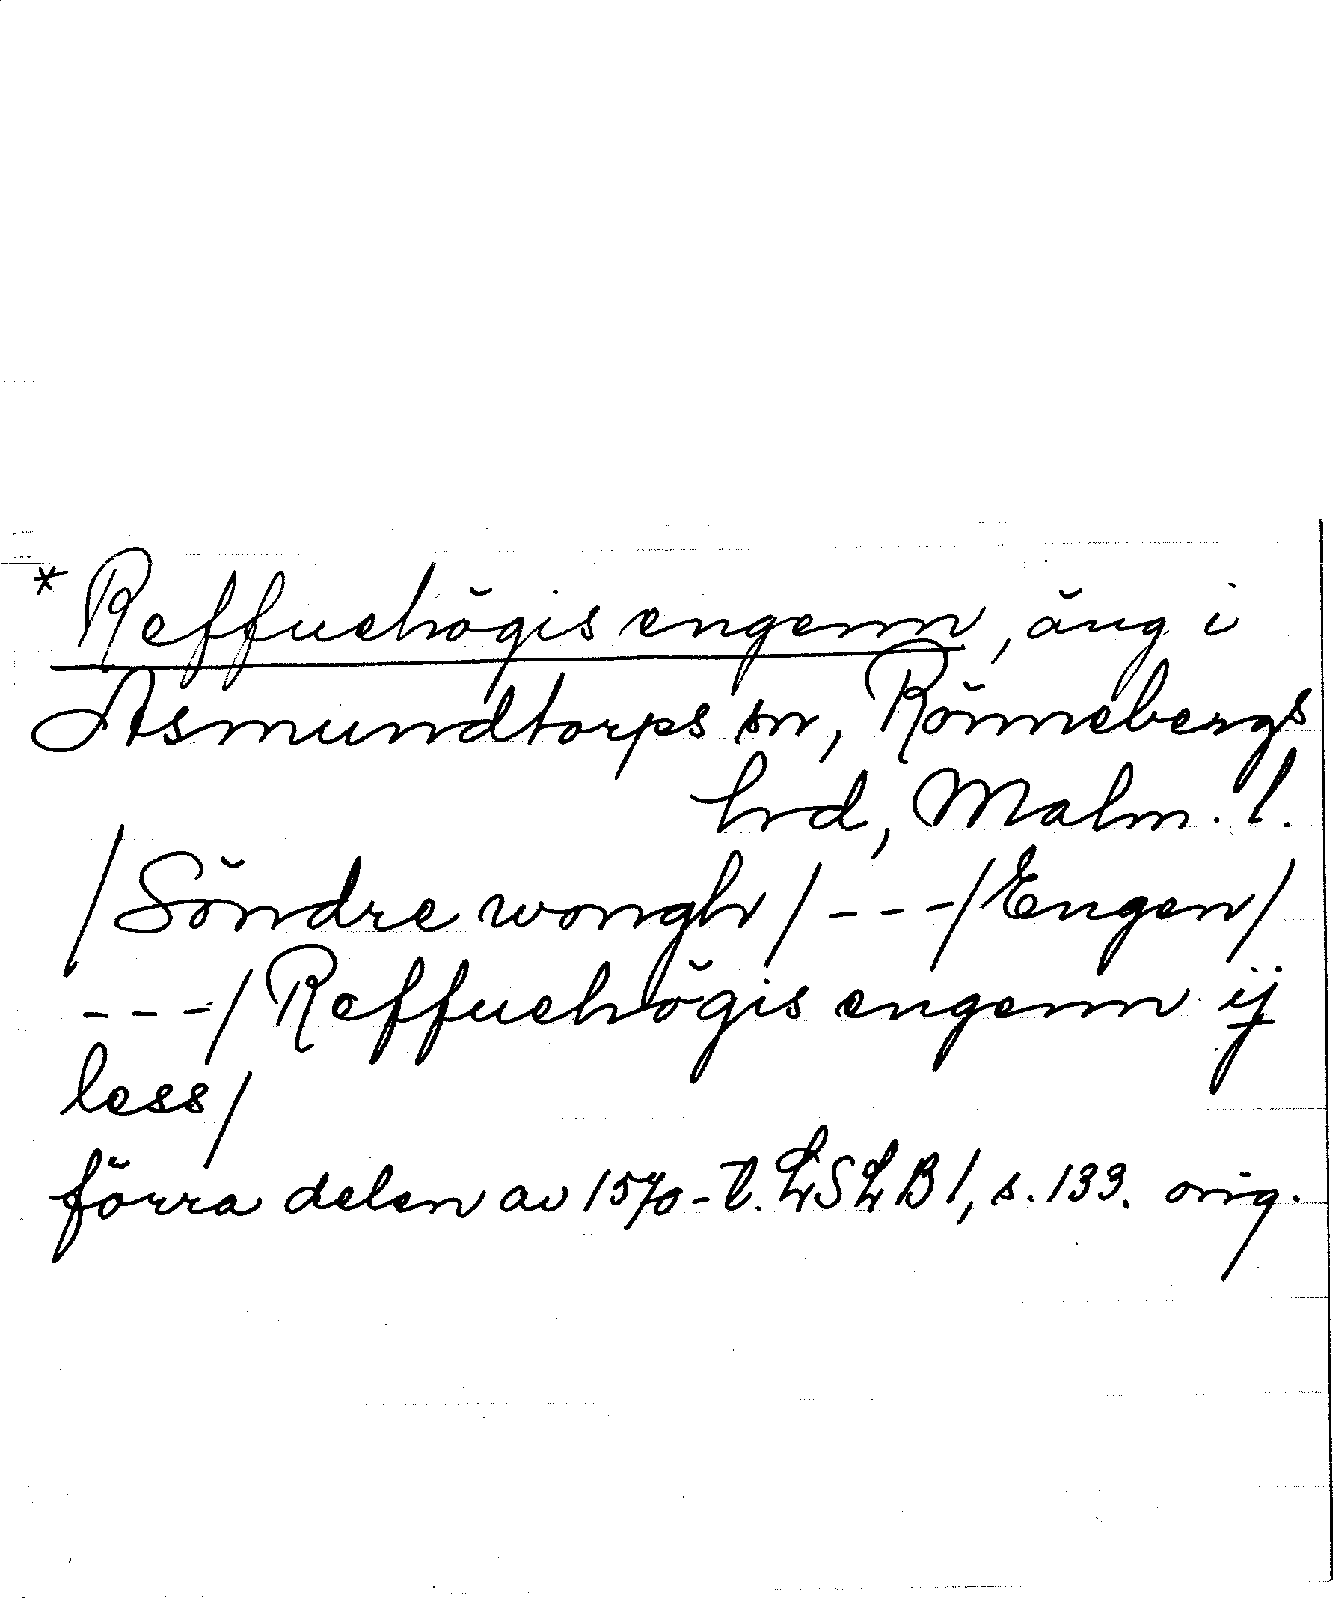 * Reffuehögis engenn, äng i
Asmundtorps sn, Rönnebergs
hrd, Malm. l.
/Söndre wongh/ - - - /Engen/
- - - / Reffuehögis engenn ij
less/
förra delen av 1570-t. LSLB 1, s. 133. orig.